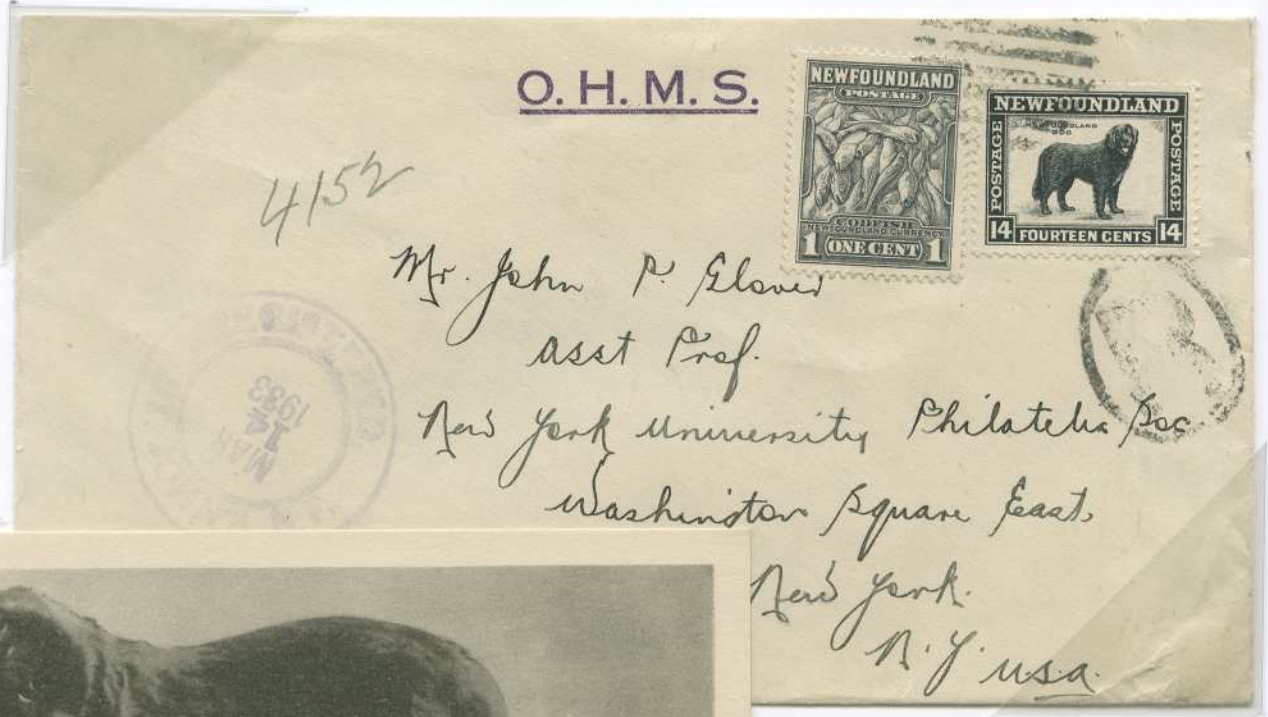 O. H. M. S.
NEWFOUNDLAND
POSTAGE
CODFISH
NEWFOUNDLAND CURRENCY
1 ONE CENT 1
NEWFOUNDLAND
NEWFOUNDLAND
DOG
POSTAGE
POSTAGE
14 FOURTEEN CENTS 14
4152
Mr. John P. Glover
Asst Prof.
New York University Philatelic Soc
Washington Square East.
New York.
N.Y. U.S.A.
R
MAR
14
1933